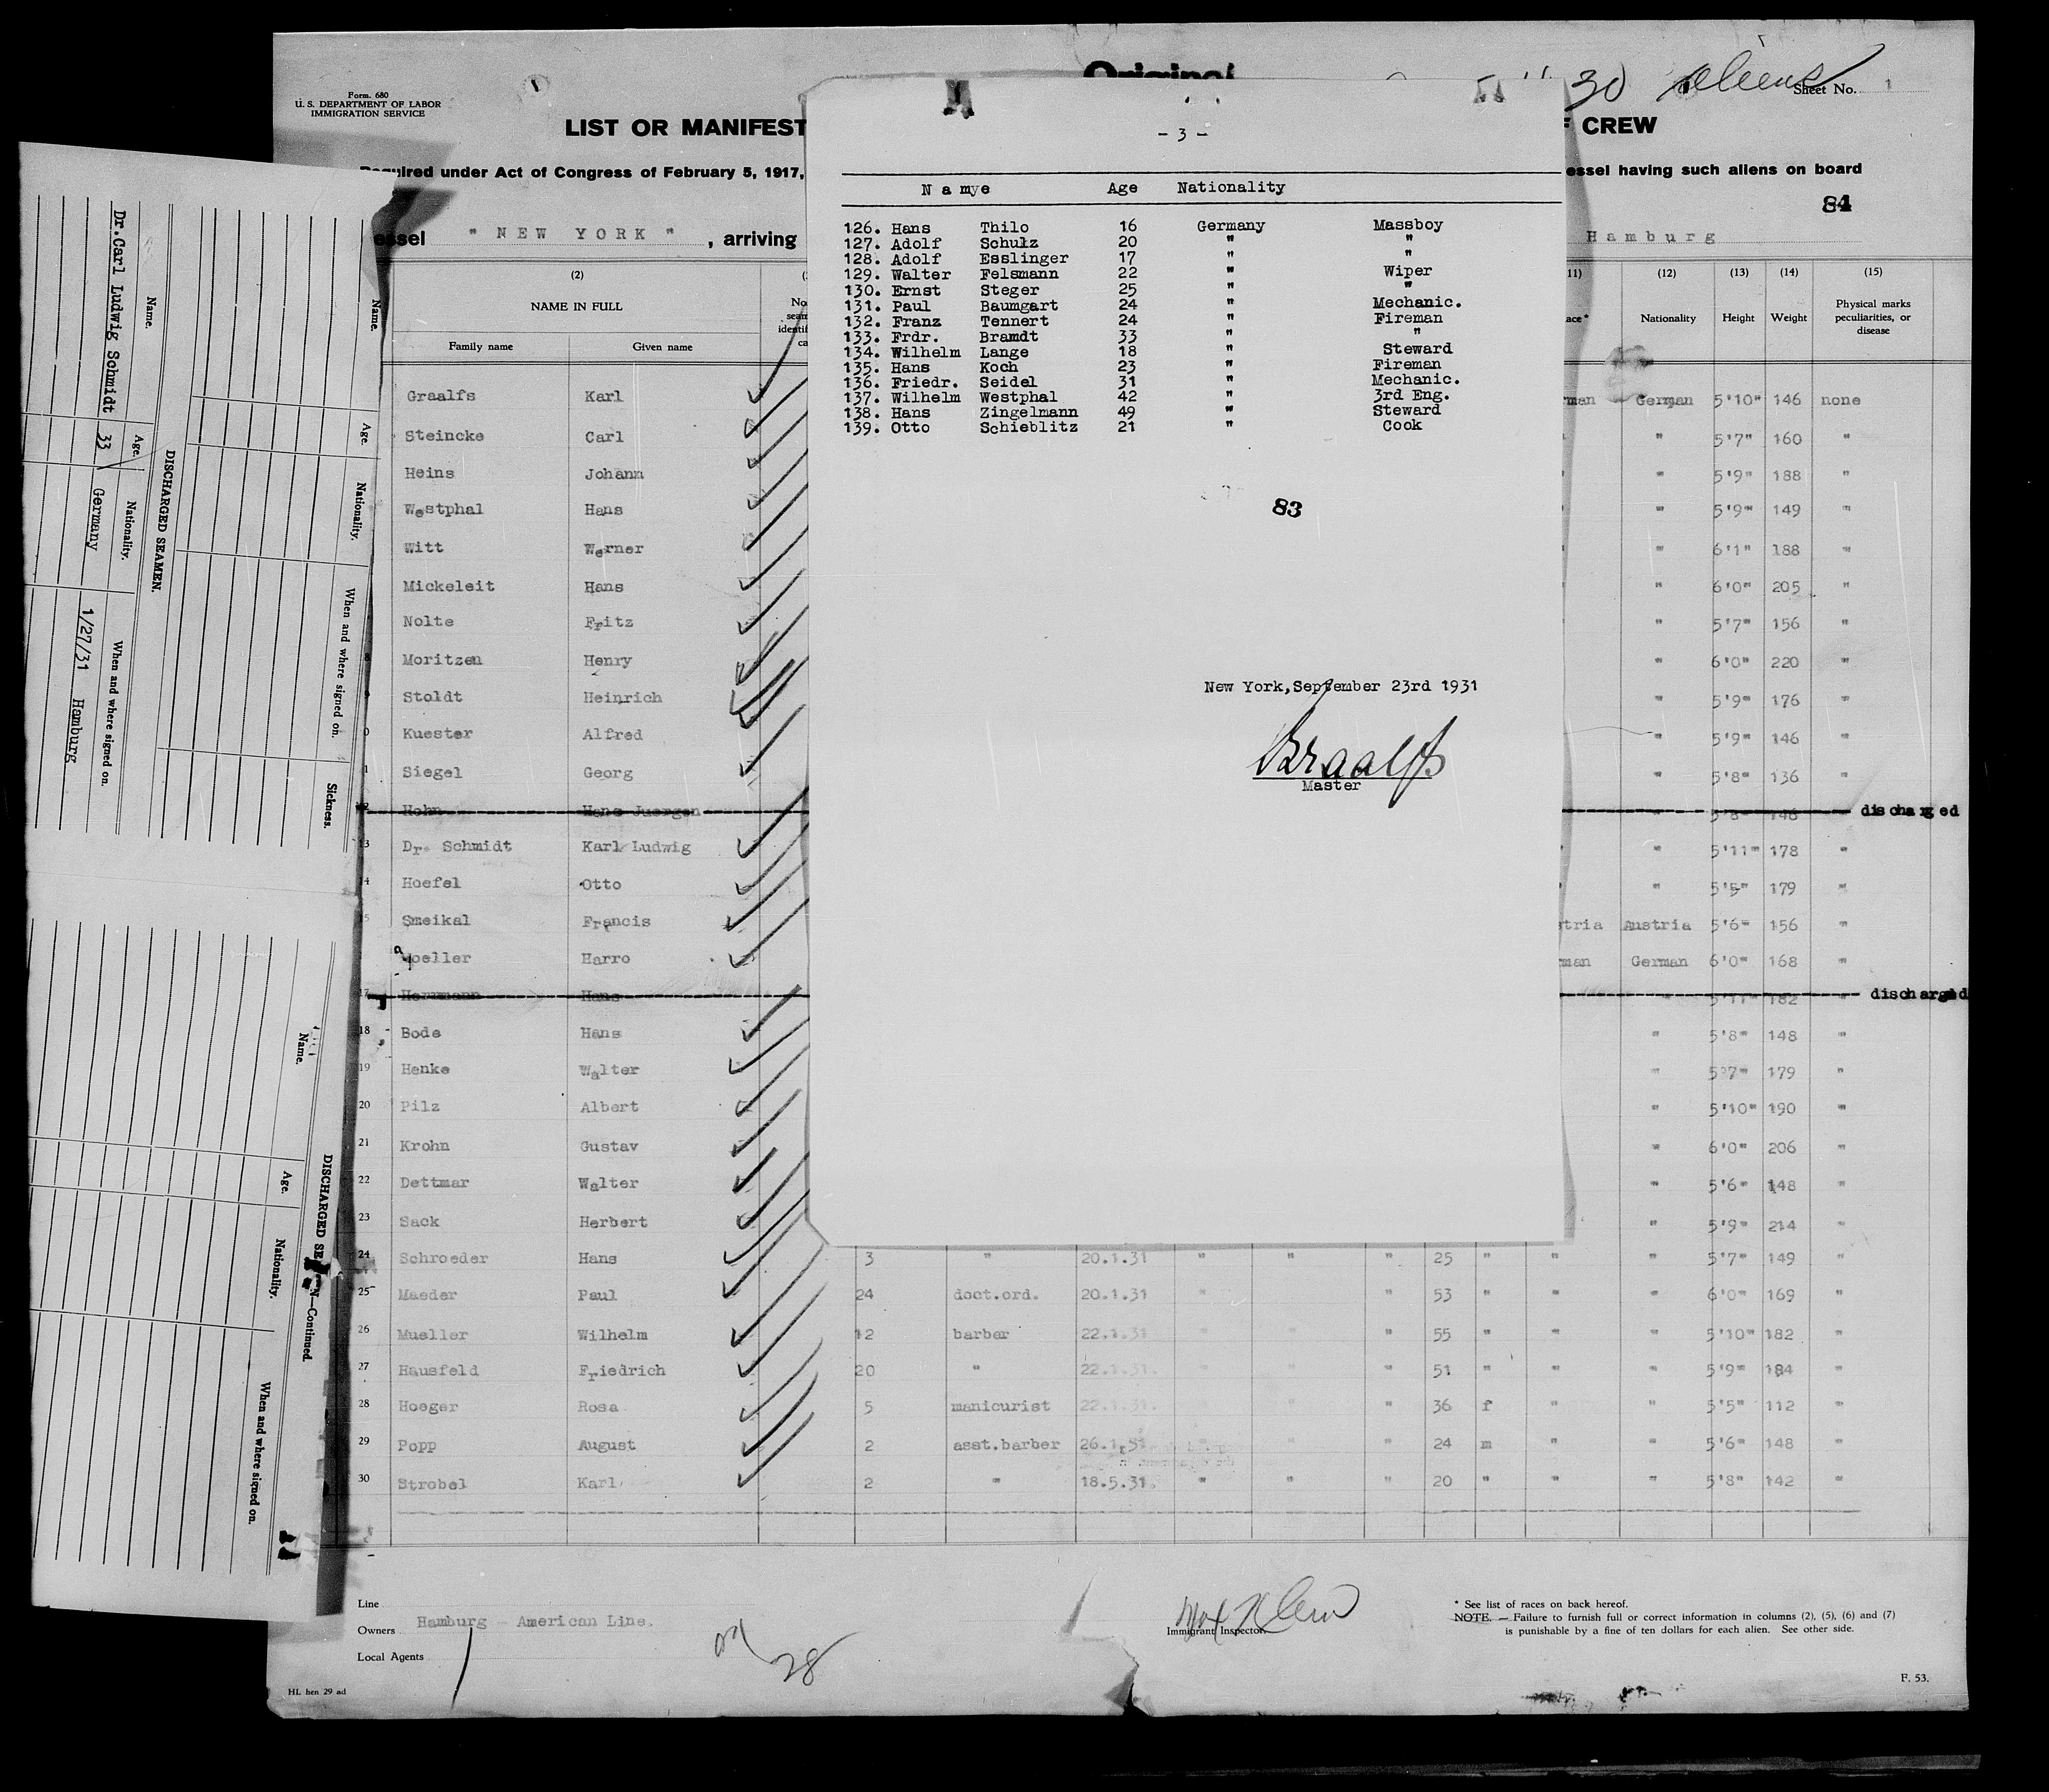 Original
30 aliens
Form. 680
U. S. DEPARTMENT OF LABOR
IMMIGRATION SERVICE
Sheet No. 1
LIST OR MANIFEST
F CREW
Required under Act of Congress of February 5, 1917,
essel having such aliens on board
84
essel " NEW YORK " , arriving
Hamburg
(2)
11) (12) (13) (14) (15)
NAME IN FULL
Family name Given name
ace* Nationality Height Weight Physical marks
peculiarities, or
disease
Graalfs Karl man German 5'10" 146 none
Steincke Carl " 5'7" 160 "
Heins Johann " 5'9" 188 "
Westphal Hans " 5'9" 149 "
Witt Werner " 6'1" 188 "
Mickeleit Hans " 6'0" 205 "
Nolte Fritz " 5'7" 156 "
8 Moritzen Henry " 6'0" 220 "
9 Stoldt Heinrich " 5'9" 176 "
0 Kuester Alfred " 5'9" 146 "
1 Siegel Georg " 5'8" 136 "
2 Hohn Hans Juergen 5'8" 148 discharged
13 Dr. Schmidt Karl Ludwig " 5'11" 178 "
14 Hoefel Otto " 5'5" 179 "
15 Smeikal Francis tria Austria 5'6" 156 "
Moeller Harro man German 6'0" 168 "
17 Herrmann Hans " 5'11" 182 " discharged
18 Bode Hans " 5'8" 148 "
19 Henke Walter " 5'7" 179 "
20 Pilz Albert " 5'10" 190 "
21 Krohn Gustav " 6'0" 206 "
22 Dettmar Walter " 5'6" 148 "
23 Sack Herbert " 5'9" 214 "
24 Schroeder Hans 3 " 20.1.31 " " " 25 " " " 5'7" 149 "
25 Maeder Paul 24 doct.ord. 20.1.31 " " 53 " " " 6'0" 169 "
26 Mueller Wilhelm 12 barber 22.1.31 " " " 55 " " " 5'10" 182 "
27 Hausfeld Friedrich 20 " 22.1.31. " " " 51 " " " 5'9" 184 "
28 Hoeger Rosa 5 manicurist 22.1.31. " " " 36 f " " 5'5" 112 "
29 Popp August 2 asst.barber 26.1.31 " " " 24 m " " 5'6" 148 "
30 Strobel Karl 2 " 18.5.31. " " " 20 " " " 5'8" 142 "
Line
Owners Hamburg - American Line.
Local Agents
28
Immigrant Inspector.
* See list of races on back hereof.
NOTE. — Failure to furnish full or correct information in columns (2), (5), (6) and (7)
is punishable by a fine of ten dollars for each alien. See other side.
HL hen 29 ad
F. 53.
- 3 -
Namye Age Nationality
126. Hans Thilo 16 Germany Massboy
127. Adolf Schulz 20 " "
128. Adolf Esslinger 17 " "
129. Walter Felsmann 22 " Wiper
130. Ernst Steger 25 " "
131. Paul Baumgart 24 " Mechanic.
132. Franz Tennert 24 " Fireman
133. Frdr. Bramdt 33 " "
134. Wilhelm Lange 18 " Steward
135. Hans Koch 23 " Fireman
136. Friedr. Seidel 31 " Mechanic.
137. Wilhelm Westphal 42 " 3rd Eng.
138. Hans Zingelmann 49 " Steward
139. Otto Schieblitz 21 " Cook
83
New York,September 23rd 1931
Graalfs
Master
Name. Age. Nationality. When and where signed on. Sickness.
DISCHARGED SEAMEN.
Name. Age. Nationality. When and where signed on.
Dr.Carl Ludwig Schmidt 33 Germany 1/27/31 Hamburg
DISCHARGED SE N—Continued.
Name. Age. Nationality. When and where signed on.